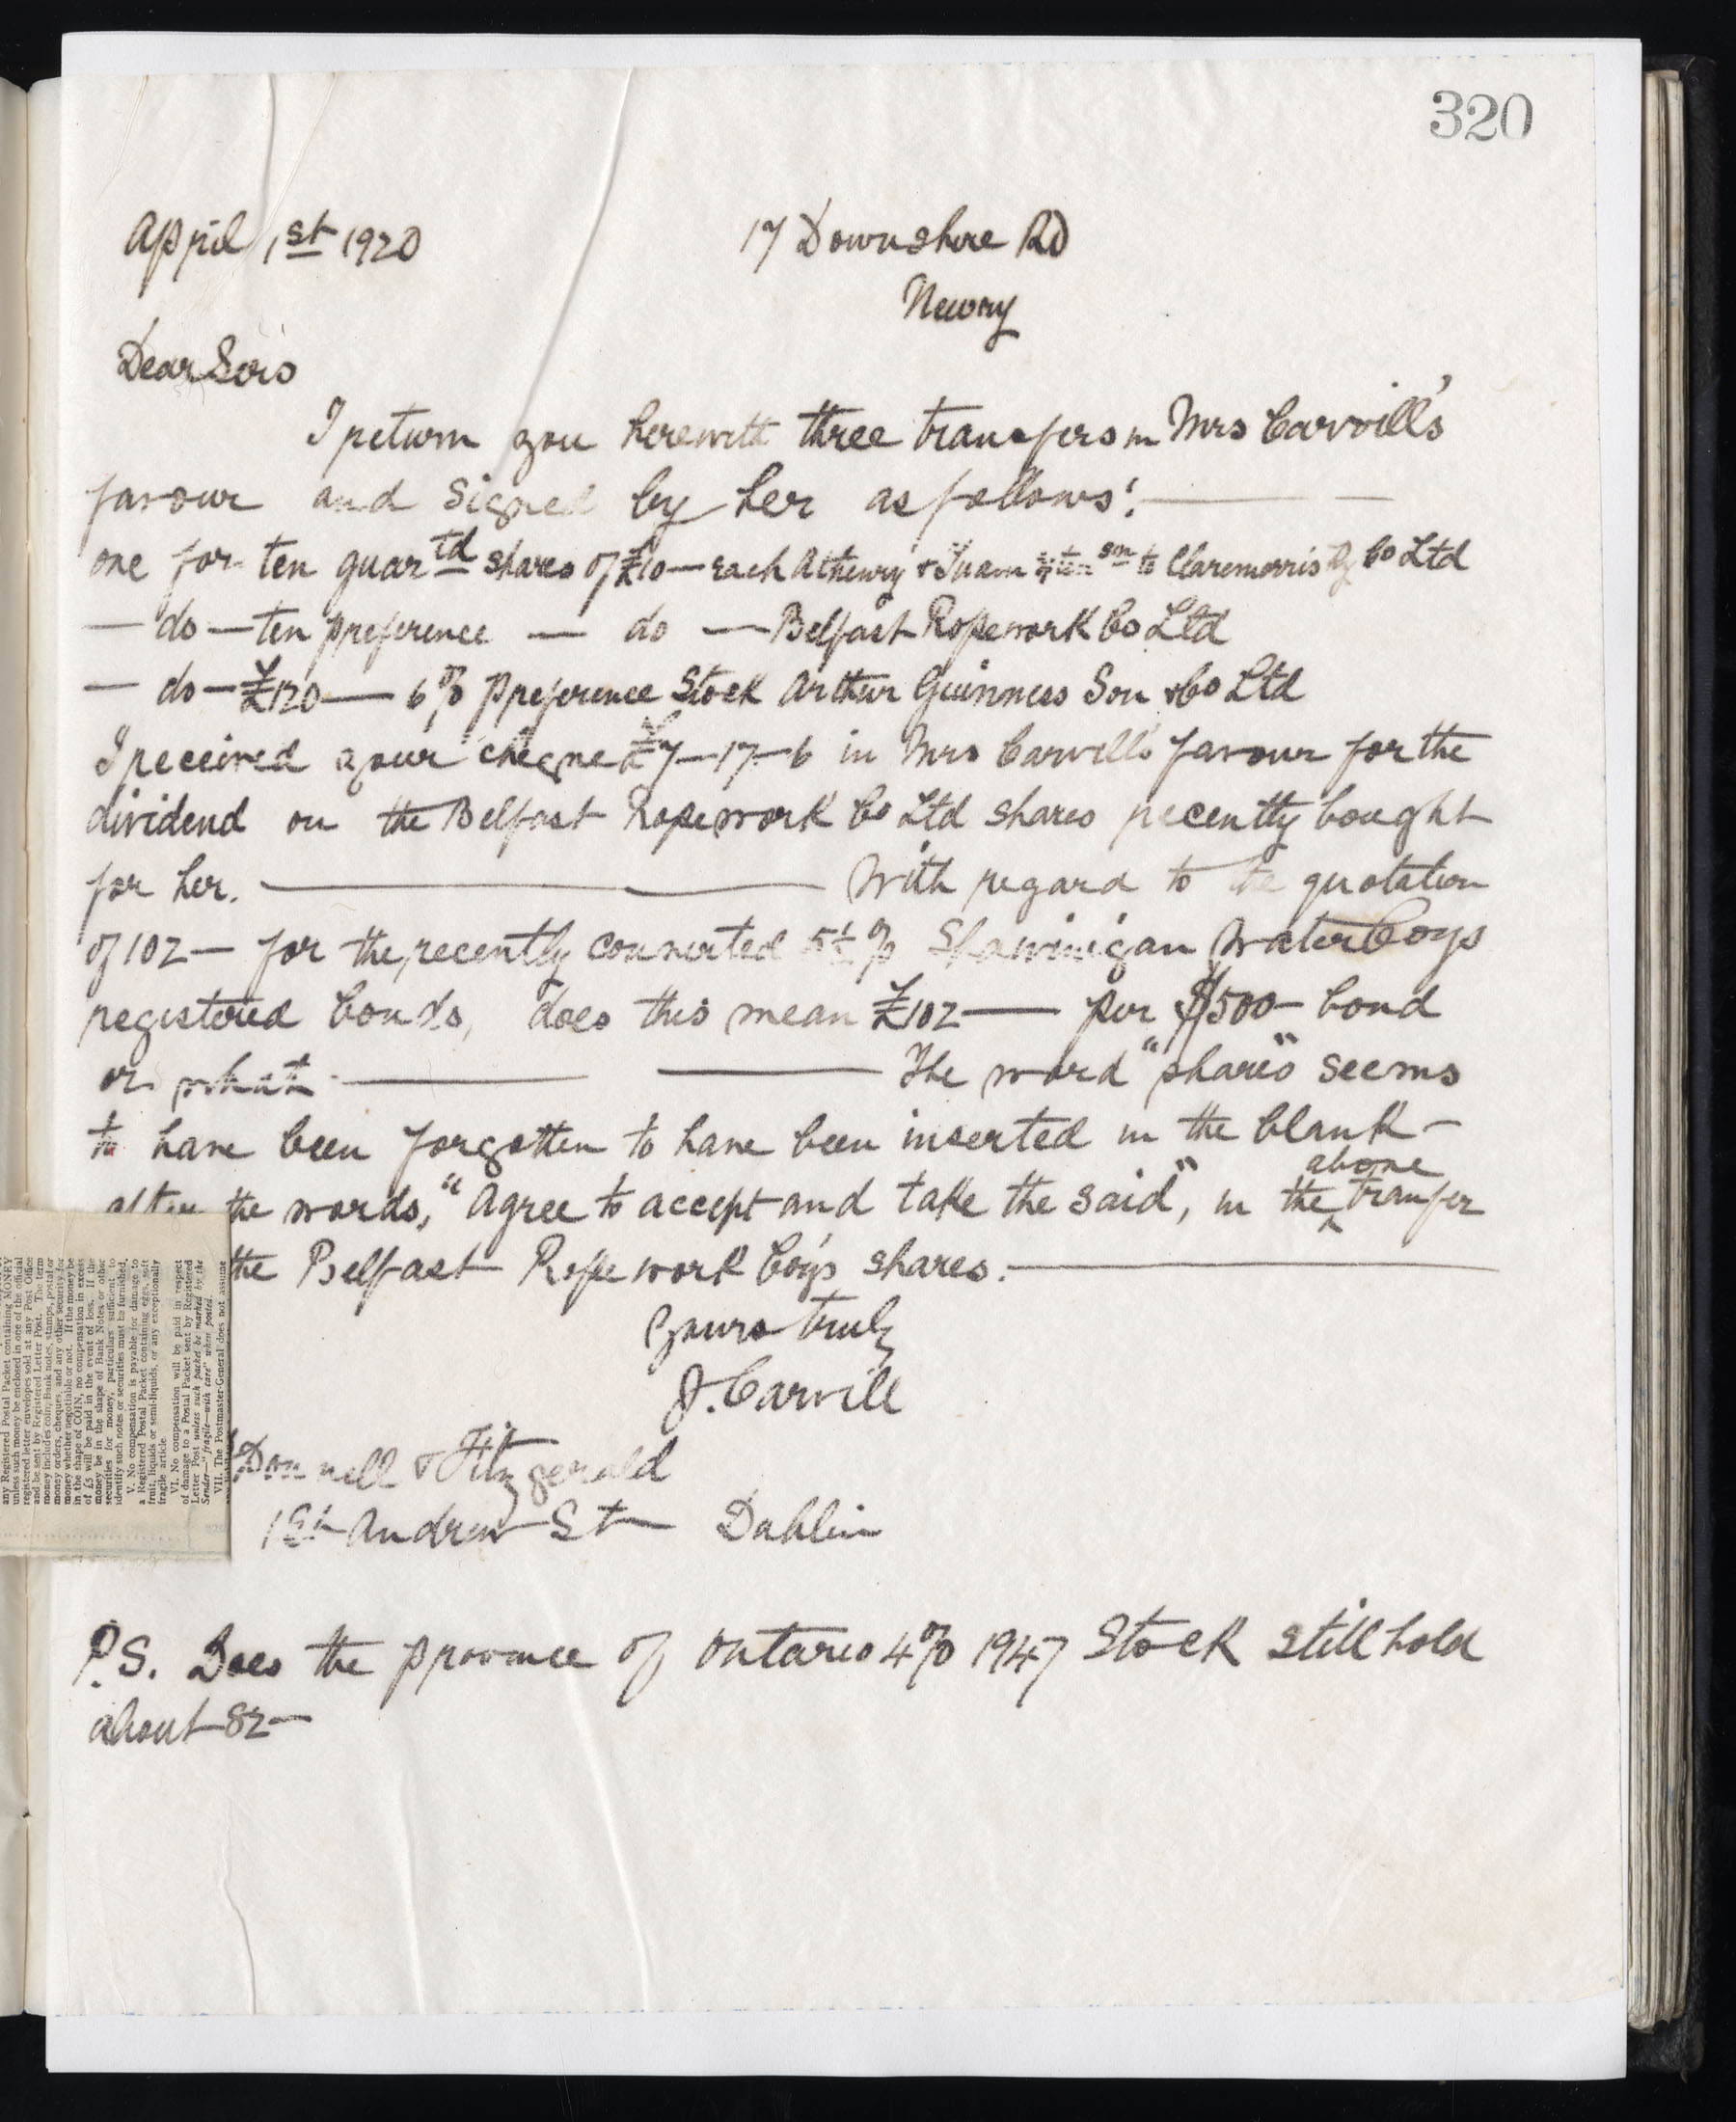 320
April 1st 1920 17 Downshire Rd
Newry
Dear Sirs
I return you herewith three transfers in Mrs Carvill's
favour and signed by her as follows:—
one for ten guartd shares of £10— each Athenry & Tuam extensn to Claremorris Ry Co Ltd
— do — ten preference — do — Belfast Ropework Co Ltd
— do — £120 — 6% preference Stock Arthur Guinness Son & Co Ltd
I received your cheque £7-17-6 in Mrs Carvill's favour for the
dividend on the Belfast Ropework Co Ltd shares recently bought
for her. — With regard to the quotation
of 102 — for the recently converted 5½% Shawinigan Water Coys
registered bonds, does this mean £102 — per $500 — bond
or what — The word "shares" seems
to have been forgotten to have been inserted in the blank —
after the words, "Agree to accept and take the said", in the above tranfer
the Belfast Ropework Coy's shares. —
Yours truly
J. Carvill
Donnell & Fitzgerald
1 St Andrew St Dublin
P.S. Does the province of Ontario 4% 1947 Stock still hold
about 82 —
any Registered Postal Packet containing MONEY
unless such money be enclosed in one of the official
registered letter envelopes sold at any Post Office
and be sent by Registered Letter Post. The term
money includes coin, Bank notes, stamps, postal or
money orders, cheques, and any other security for
money whether negotiable or not. If the money be
in the shape of COIN, no compensation in excess
of £5 will be paid in the event of loss. If the
money be in the shape of Bank Notes or other
securities for money, particulars sufficient to
identify such notes or securities must be furnished.
V. No compensation is payable for damage to
a Registered Postal Packet containing eggs, soft
fruit, liquids or semi-liquids, or any exceptionally
fragile article.
VI. No compensation will be paid in respect
of damage to a Postal Packet sent by Registered
Letter Post unless such packet be marked by the
Sender—"fragile—with care" when posted.
VII. The Postmaster-General does not assume